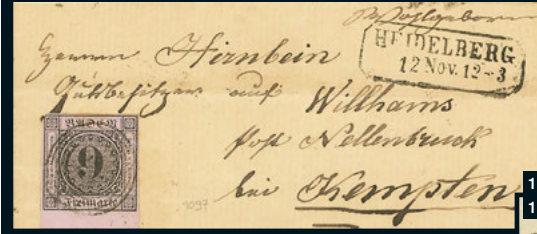 Wohlgeboren
HEIDELBERG
12 Nov. 12-3
Herrn Hirnbein
Gutsbesitzer auf
Willhams
Post Nellenbruck
bei Kempten
BADEN
9
Freimarke
1097
1
1